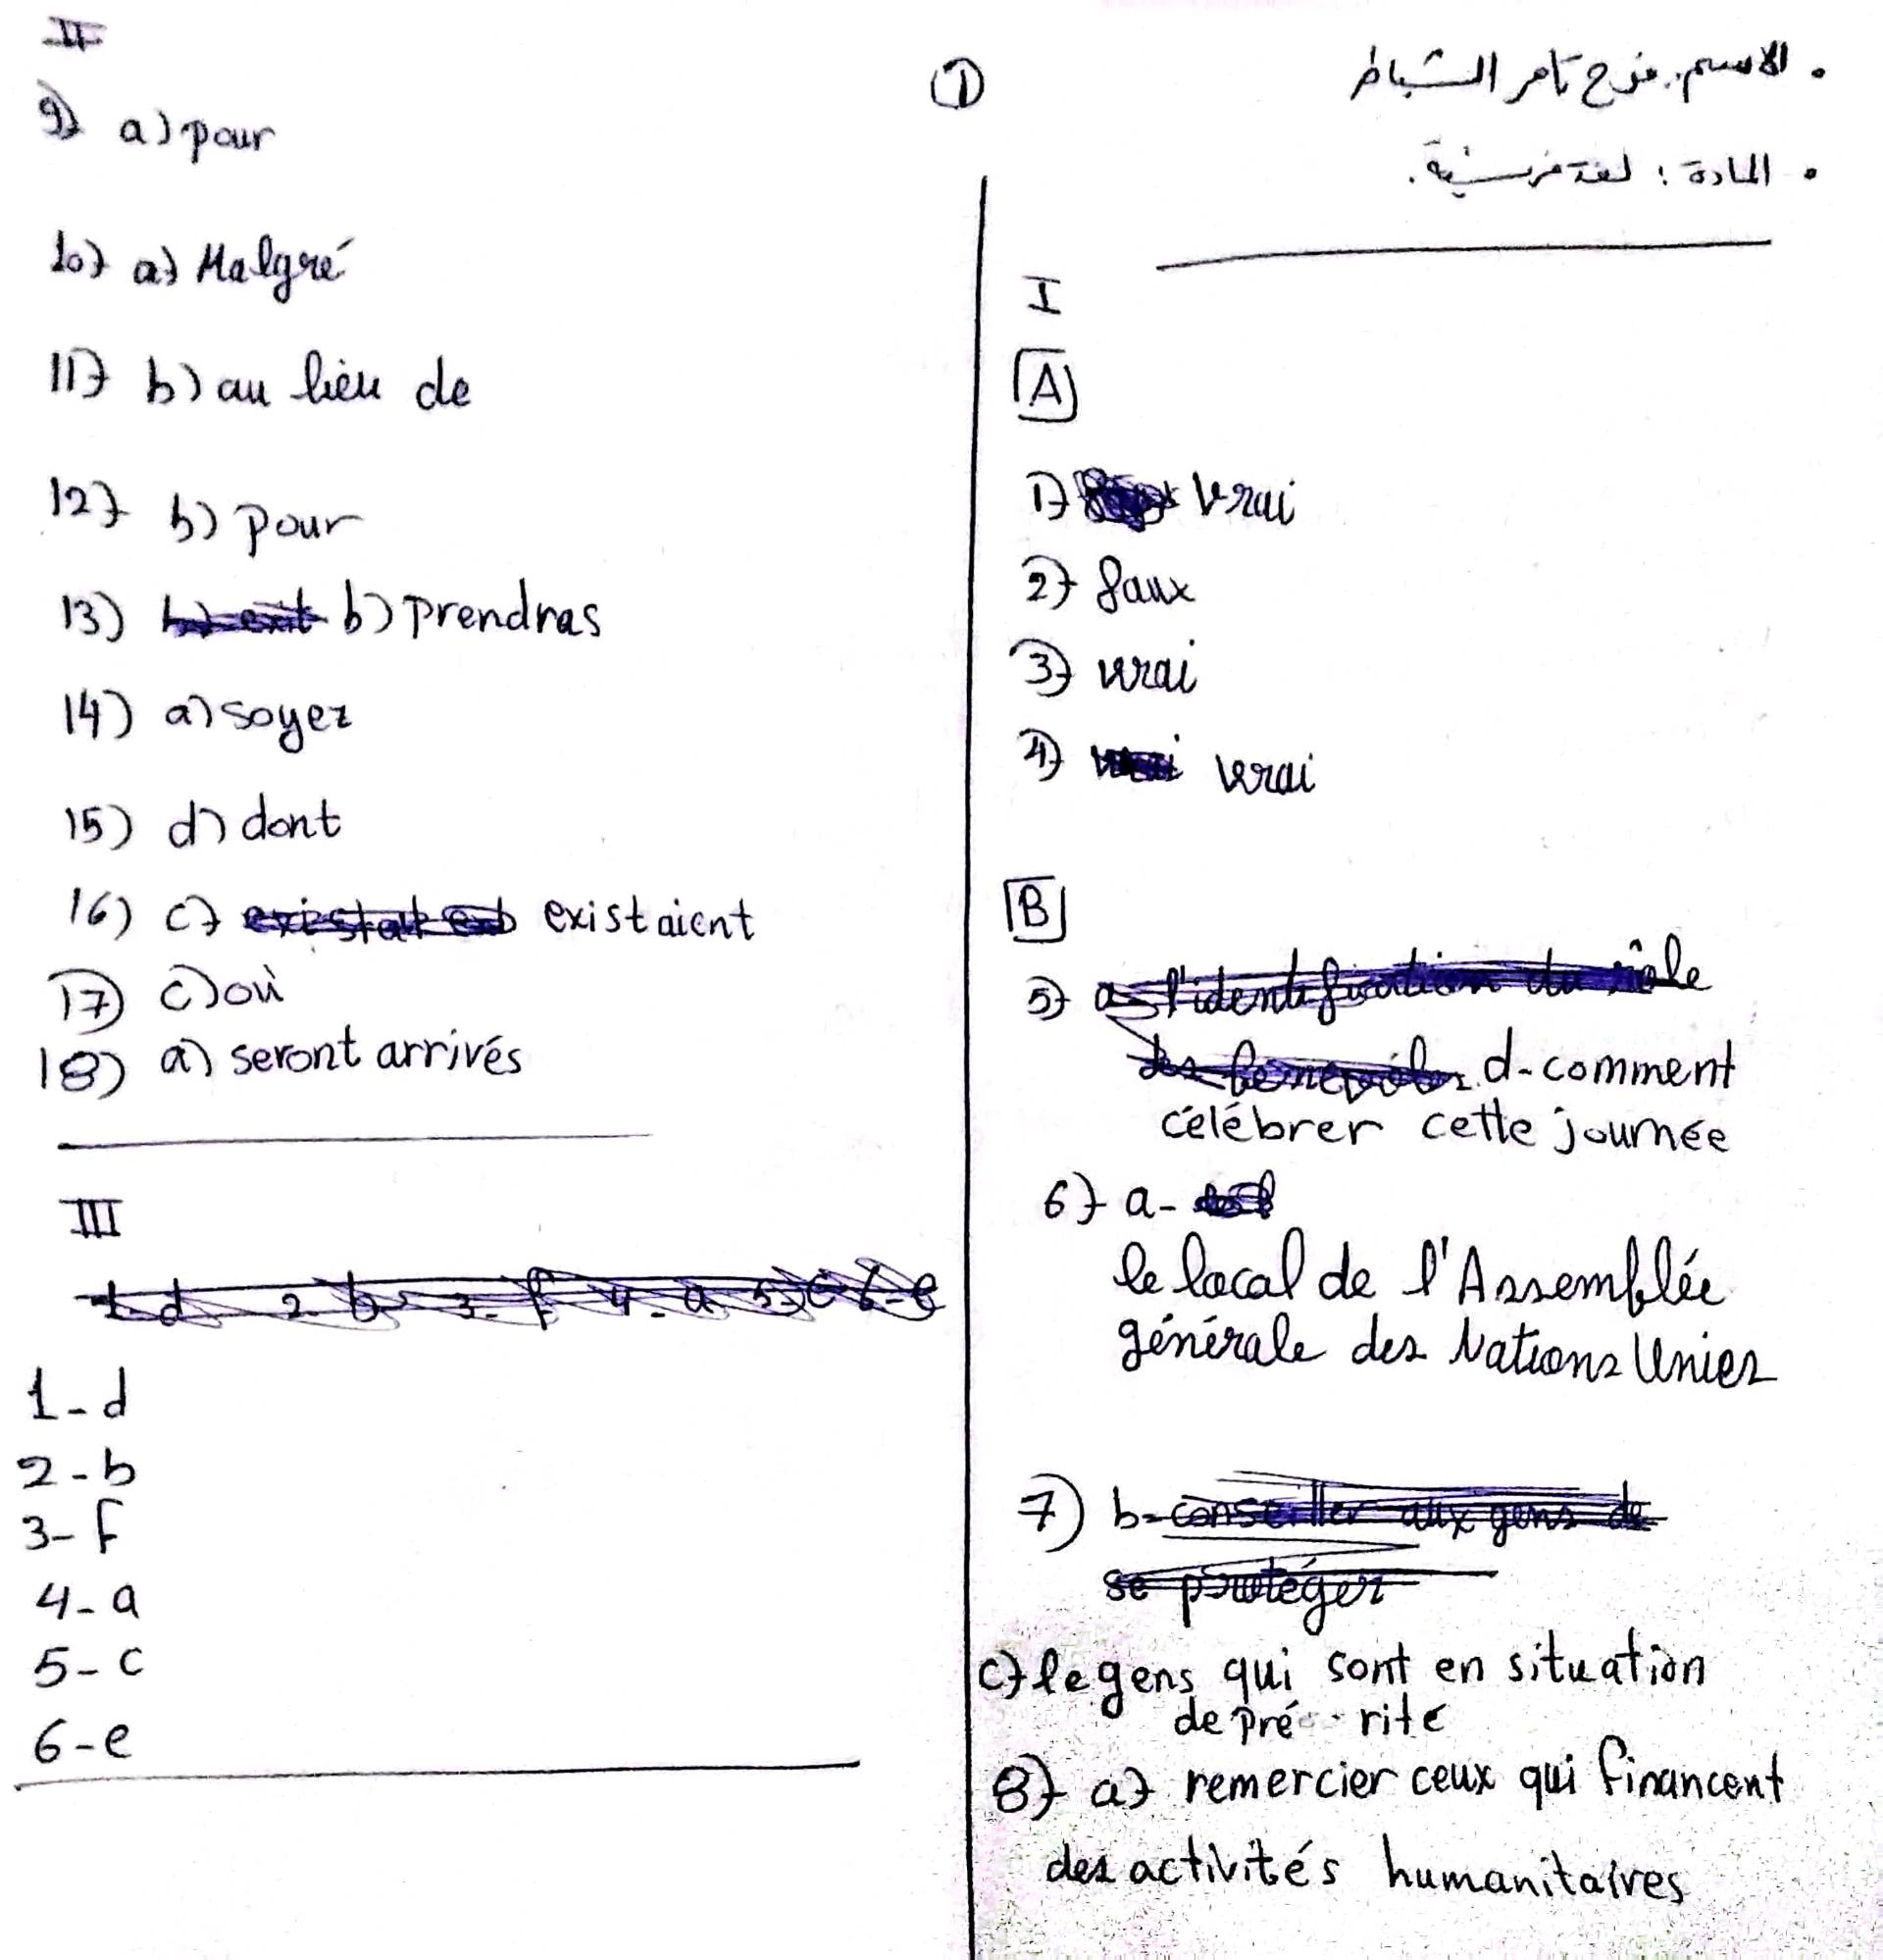 ①
• الاسم: فرح تامر الشباط
• المادة: لغة فرنسية.
I
A
1) vrai
2) faux
3) vrai
4) vrai
B
5) d-comment
célébrer cette journée
6) a-
le local de l'Assemblée
générale des Nations Unies
7) b-conseiller aux gens de
se protéger
c) le gens qui sont en situation
de pré rité
8) a) remercier ceux qui financent
des activités humanitaires
II
9) a) pour
10) a) Malgré
11) b) au lieu de
12) b) pour
13) b) prendras
14) a) soyez
15) d) dont
16) c) existaient
17) c) où
18) a) seront arrivés
III
1-d
2-b
3-f
4-a
5-c
6-e